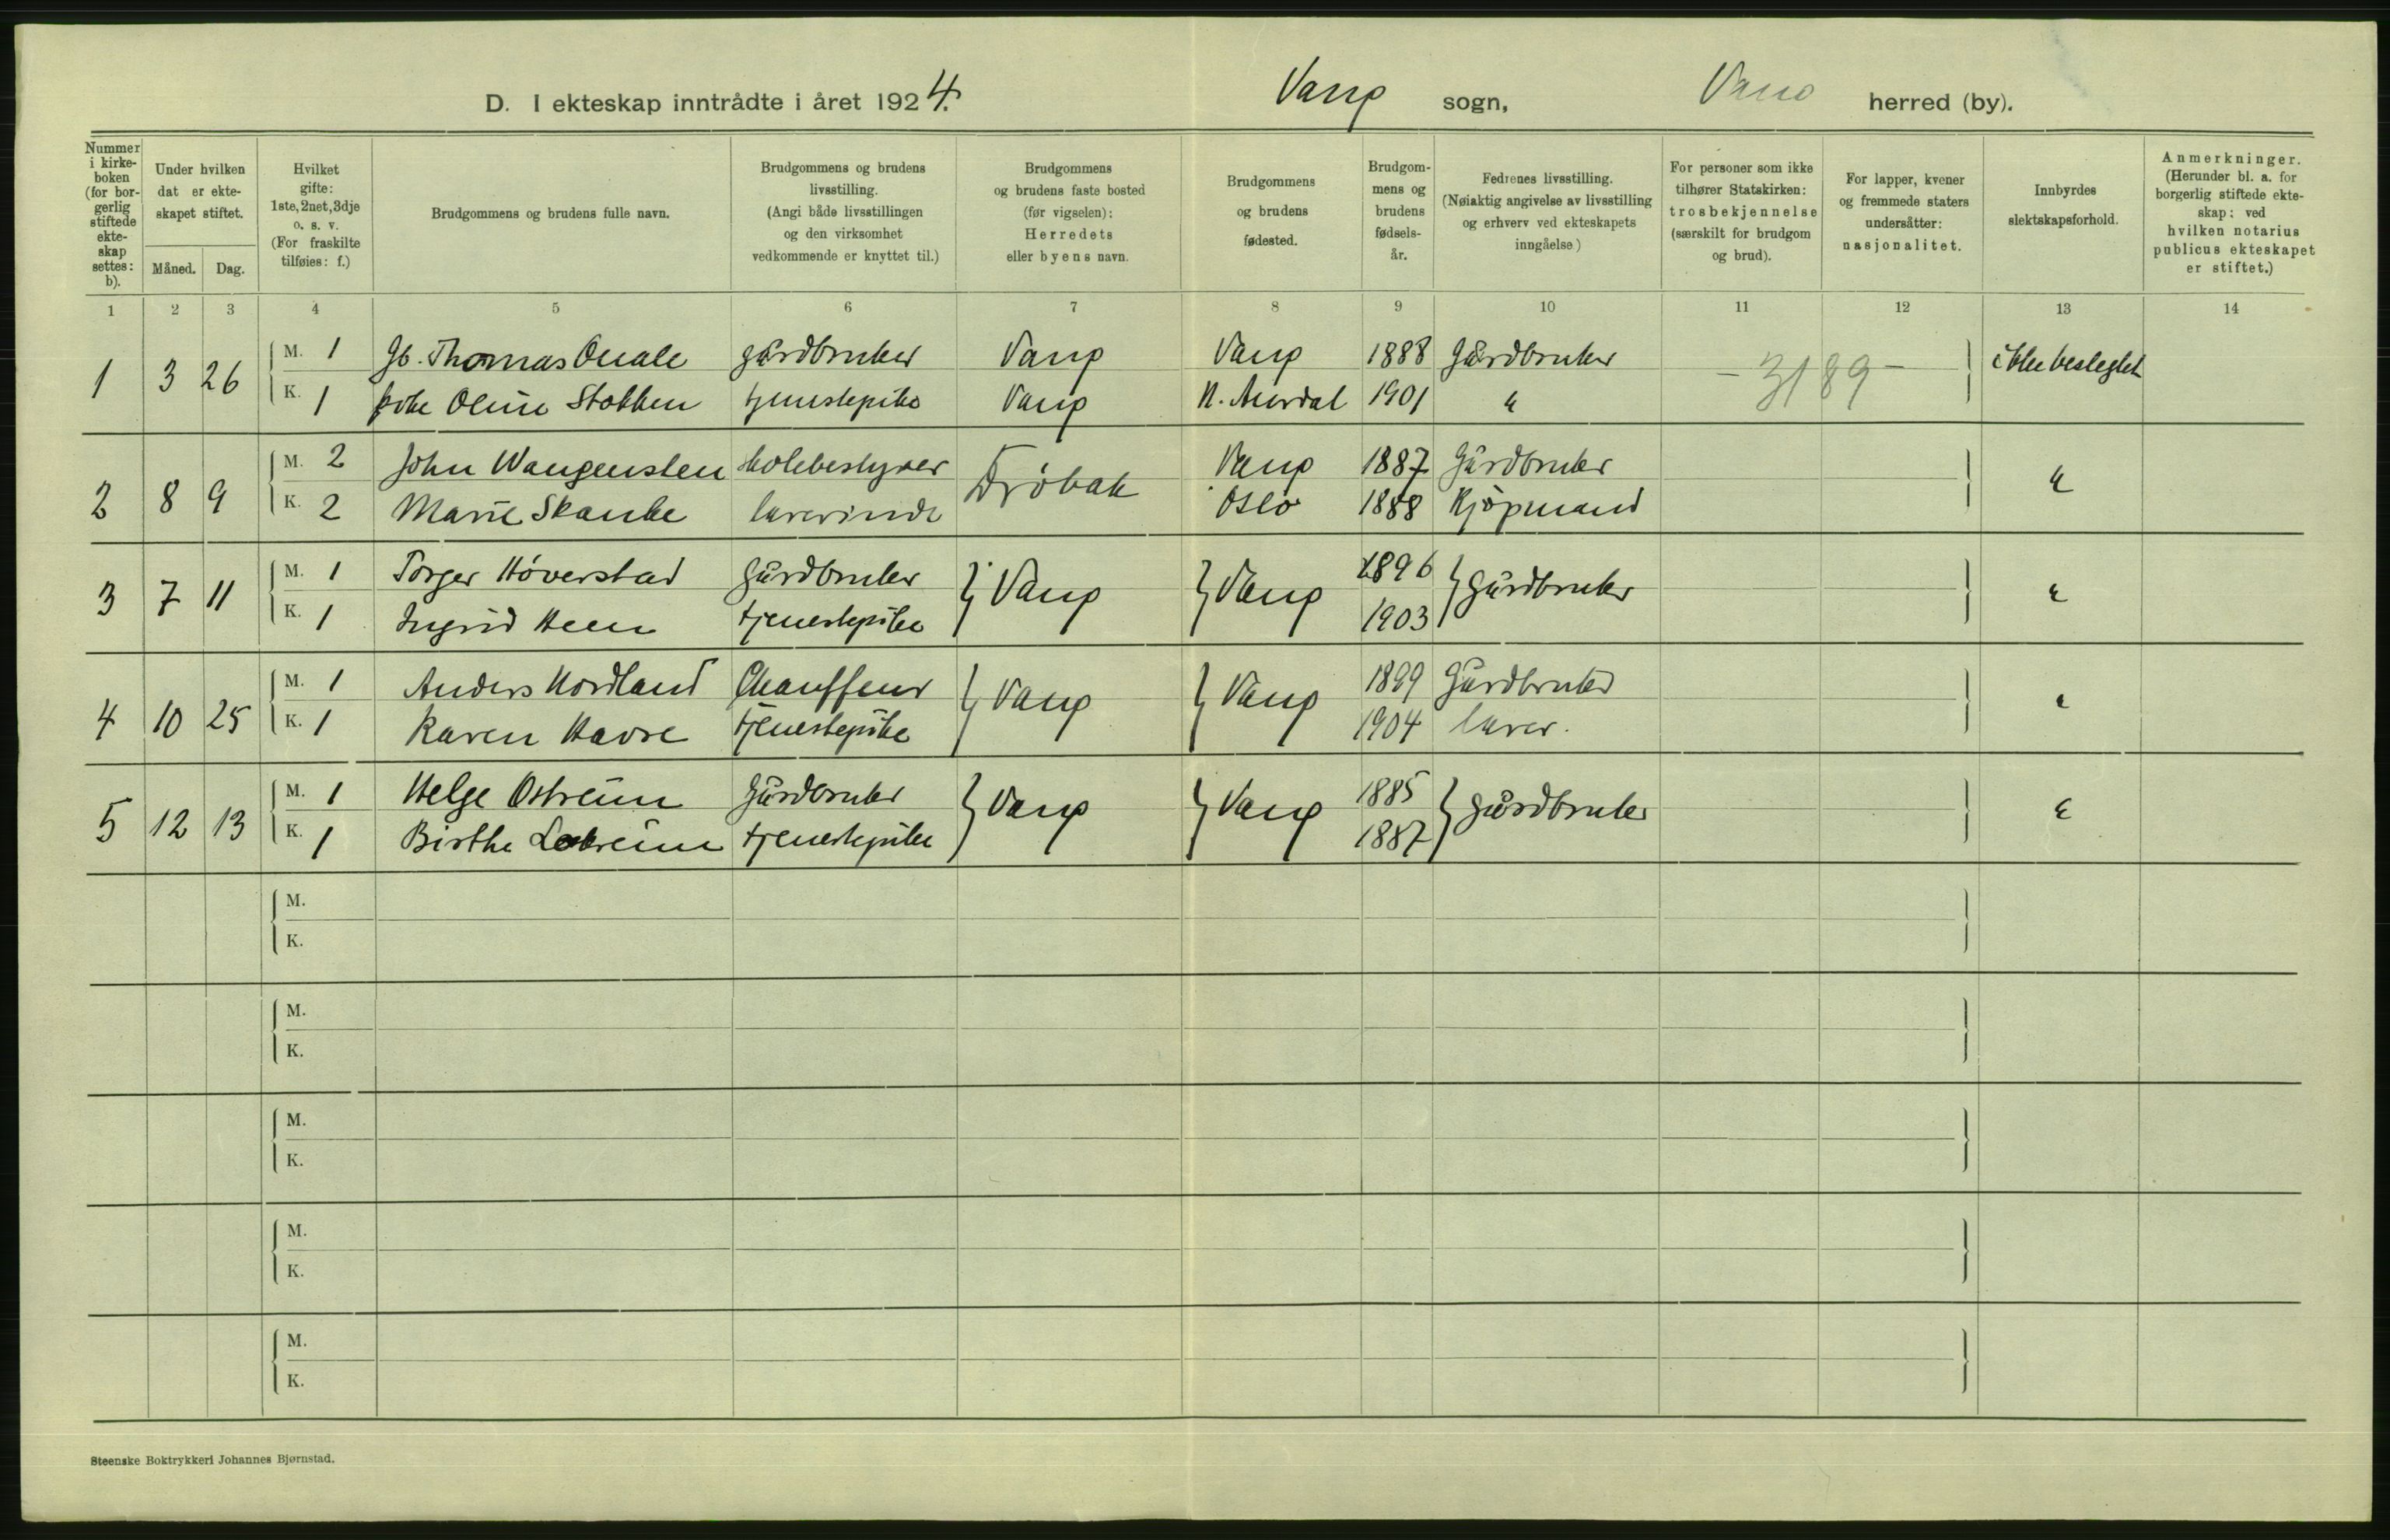 D. I ekteskap inntrådte i året 1924. Vang sogn, Vang herred (by).
Nummer i kirke- boken (for bor- gerlig stiftede ekte- skap settes: b).
Under hvilken dat er ekte- skapet stiftet.
Måned. Dag.
Hvilket gifte: 1ste, 2net, 3dje o. s. v. (For fraskilte tilføies: f.)
Brudgommens og brudens fulle navn.
Brudgommens og brudens livsstilling. (Angi både livsstillingen og den virksomhet vedkommende er knyttet til.)
Brudgommens og brudens faste bosted (før vigselen): Herredets eller byens navn.
Brudgommens og brudens fødested.
Brudgom- mens og brudens fødsels- år.
Fedrenes livsstilling. (Nøiaktig angivelse av livsstilling og erhverv ved ekteskapets inngåelse)
For personer som ikke tilhører Statskirken: trosbekjennelse (særskilt for brudgom og brud).
For lapper, kvener og fremmede staters undersåtter: nasjonalitet.
Innbyrdes slektskapsforhold.
Anmerkninger. (Herunder bl. a. for borgerlig stiftede ekte- skap: ved hvilken notarius publicus ekteskapet er stiftet.)
1 2 3 4 5 6 7 8 9 10 11 12 13 14
1 3 26 M. 1 Thomas Quale gårdbruker Vang Vang 1888 Gårdbruker - 3189 - ikke beslegtet
K. 1 Oline Stokken tjenestepike Vang N. Aurdal 1901 "
2 8 9 M. 2 John Wangensten skolebestyrer Drøbak Vang 1887 Gårdbruker "
K. 2 Marie Skaube lærerinde Oslo 1888 Kjøpmand
3 7 11 M. 1 Torger Høverstad Gårdbruker Vang Vang 1896 Gårdbruker "
K. 1 Ingrid Heen tjenestepike 1903
4 10 25 M. 1 Anders Nordland Chauffeur Vang Vang 1899 Gårdbruker "
K. 1 Karen Havre tjenestepike 1904 lærer.
5 12 13 M. 1 Helge Ostreim Gårdbruker Vang Vang 1885 Gårdbruker "
K. 1 Birthe tjenestepike 1887
M.
K.
M.
K.
M.
K.
M.
K.
M.
K.
Steenske Boktrykkeri Johannes Bjørnstad.